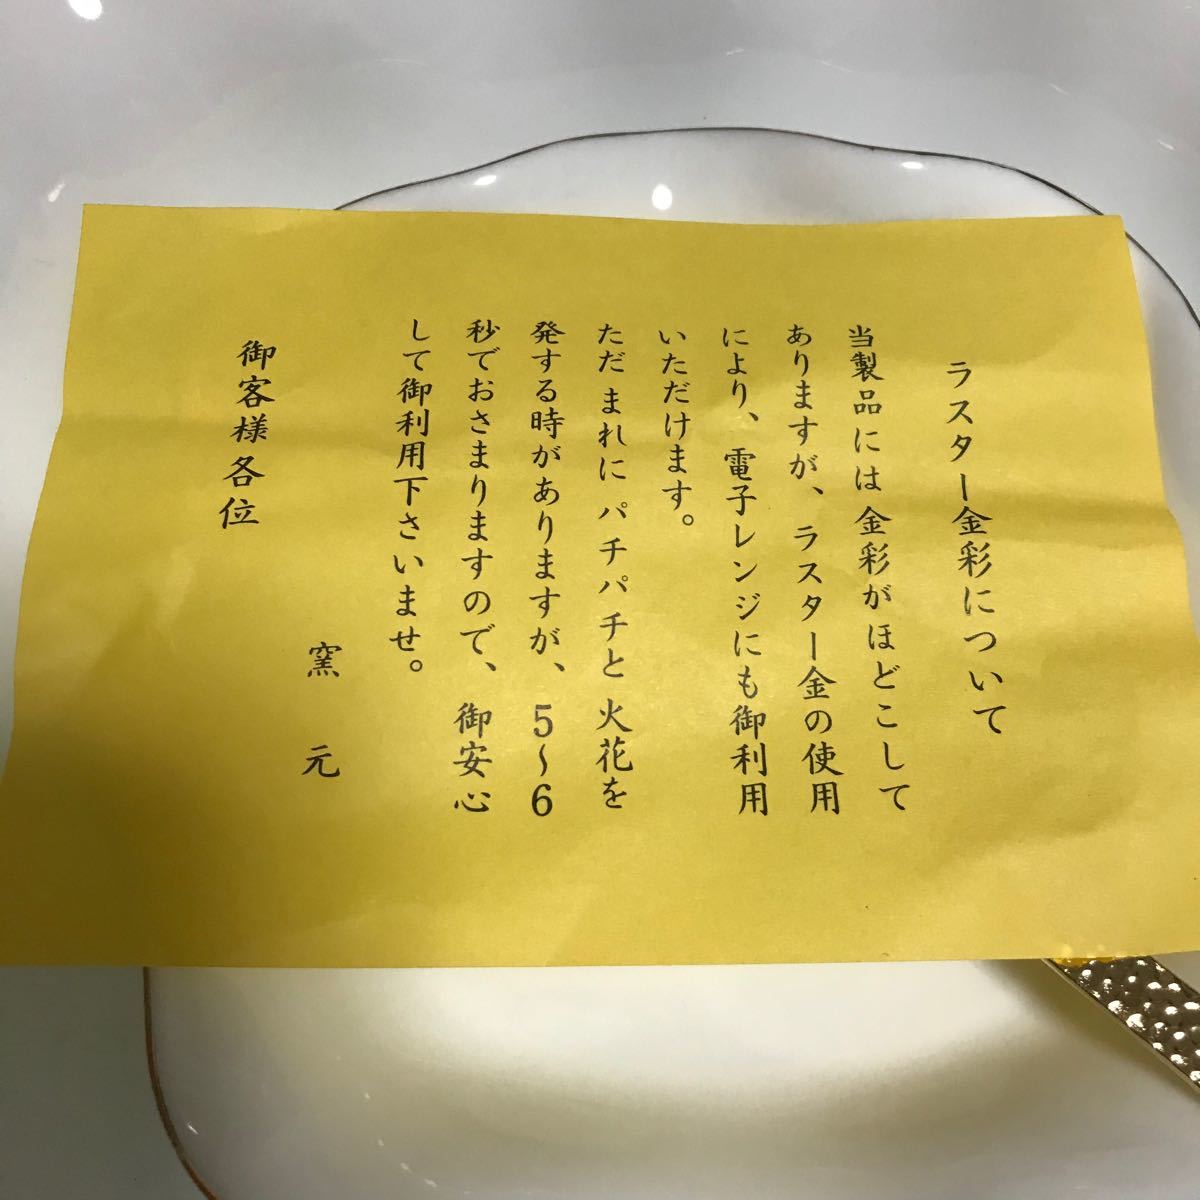 ラスター金彩について
当製品には金彩がほどこして
ありますが、ラスター金の使用
により、電子レンジにも御利用
いただけます。
ただ まれに パチパチと 火花を
発する時がありますが、5～6
秒でおさまりますので、御安心
して御利用下さいませ。
窯元
御客様各位